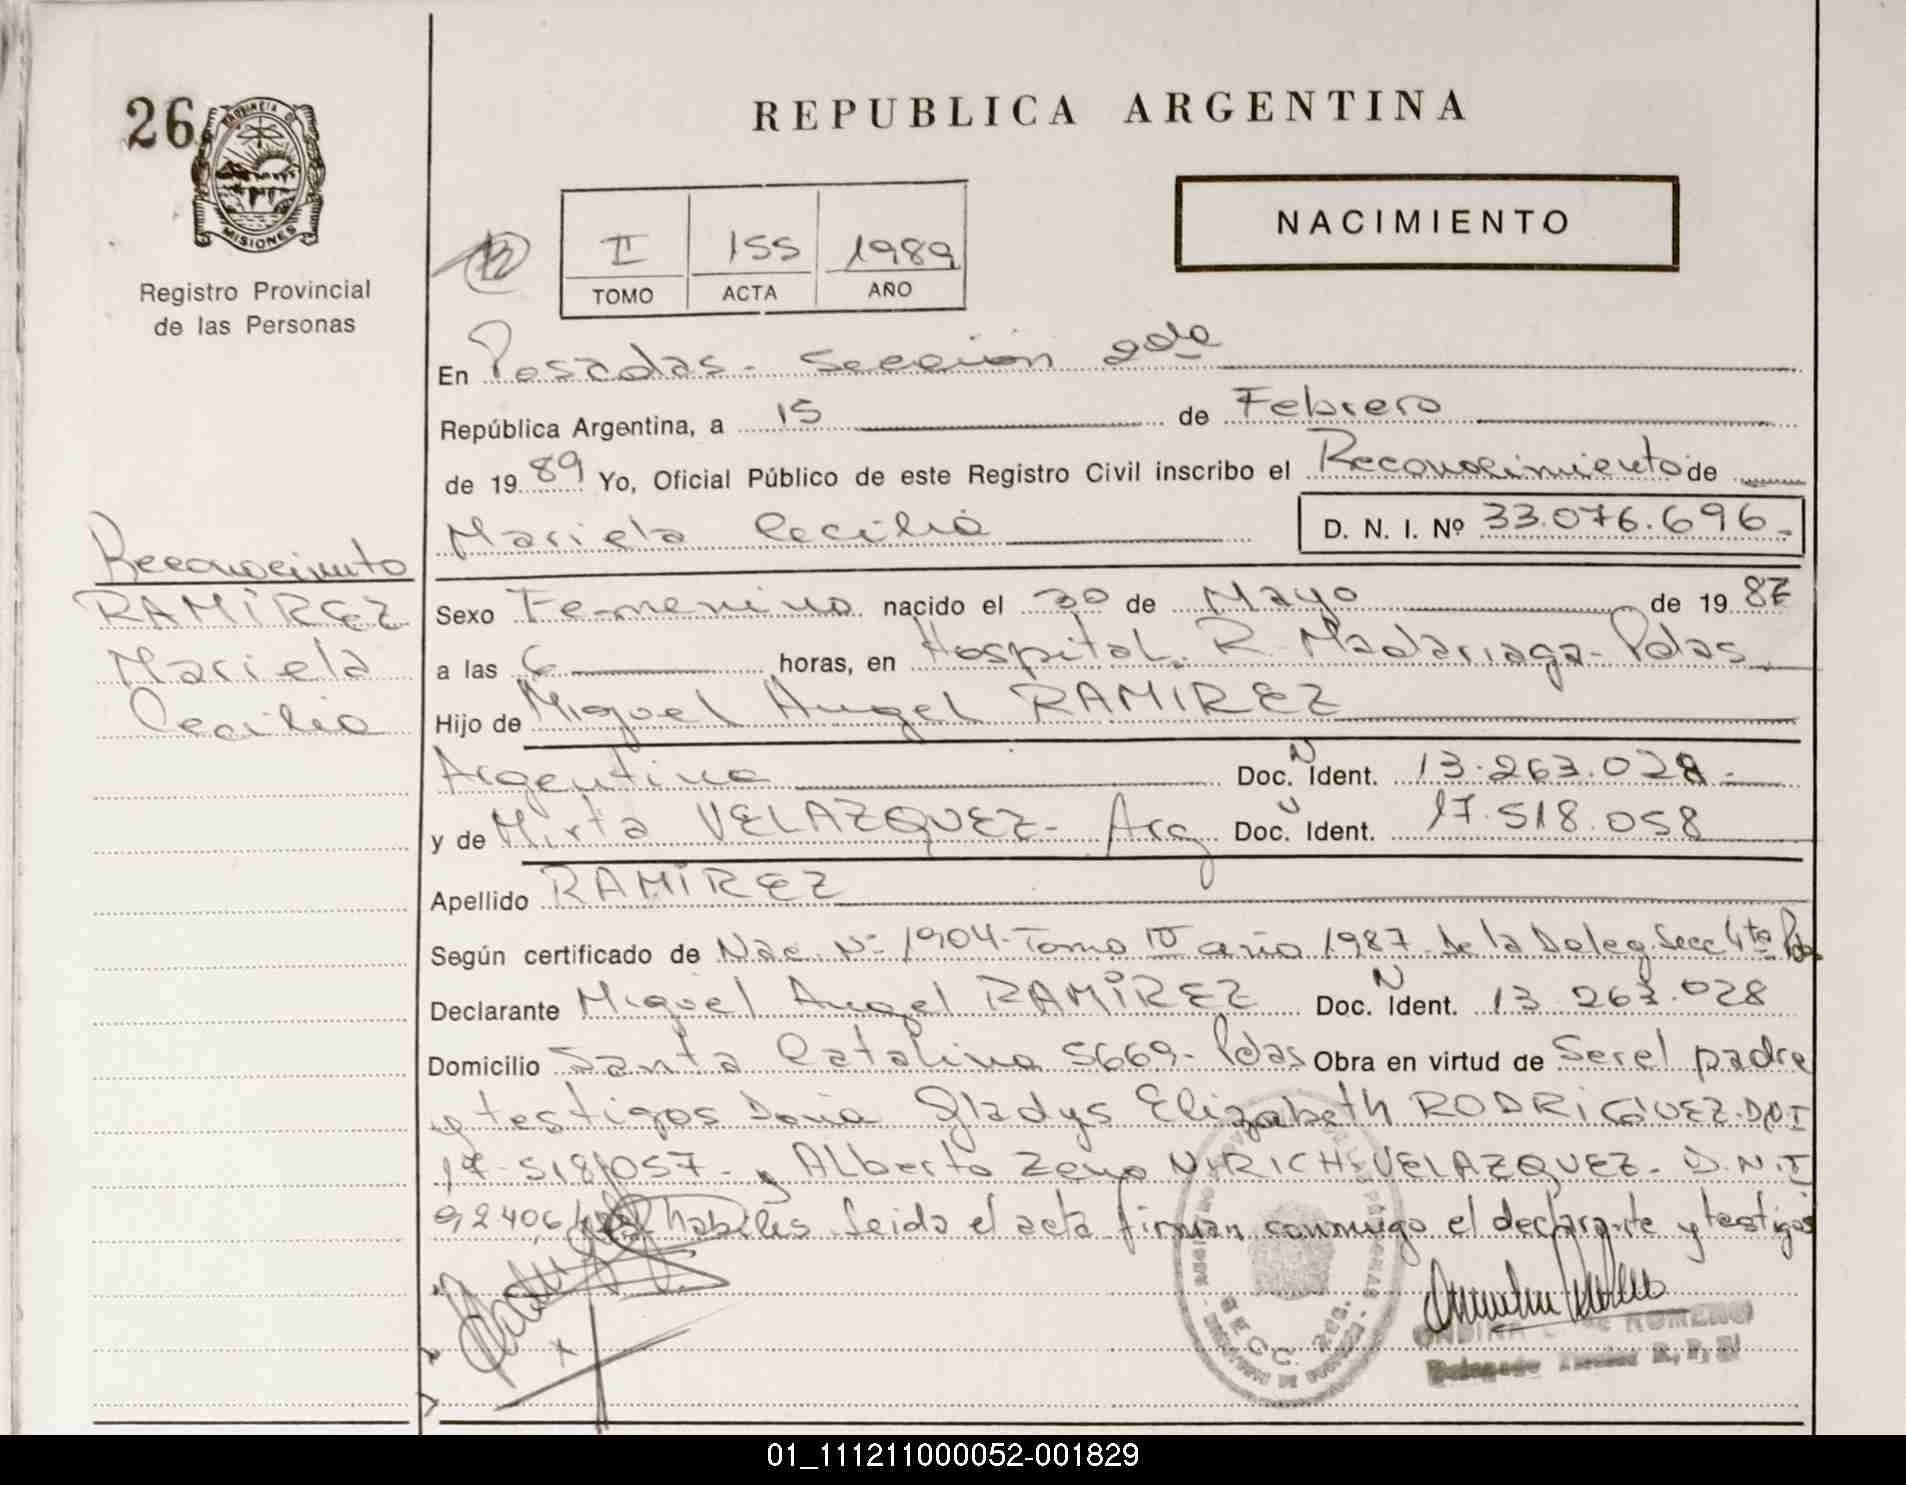 26
PROVINCIA DE
MISIONES
Registro Provincial
de las Personas
REPUBLICA ARGENTINA
NACIMIENTO
II 155 1989
TOMO ACTA AÑO
En Posadas - Sección 2da
República Argentina, a 15 de Febrero
de 19 89 Yo, Oficial Público de este Registro Civil inscribo el Reconocimiento de
Mariela Cecilia D. N. I. Nº 33.076.696.-
Reconocimiento
RAMÍREZ
Mariela
Cecilia
Sexo Femenino nacido el 30 de Mayo de 19 87
a las 6 horas, en Hospital. R. Madariaga - Pdas.
Hijo de Miguel Angel RAMIREZ
Argentino Doc. N Ident. 13.263.028.-
y de Mirta VELAZQUEZ - Arg Doc. N Ident. 17.518.058
Apellido RAMÍREZ
Según certificado de Nac. Nº 1904 - Tomo IV año 1987. De la Deleg. Secc 4ta Pdas
Declarante Miguel Angel RAMÍREZ Doc. N Ident. 13.263.028
Domicilio Santa Catalina 5669 - Pdas Obra en virtud de Ser el padre
y testigos Doña Gladys Elizabeth RODRIGUEZ. D.N.I
17.518.057 - y Alberto Zeno VELAZQUEZ - D.N.I
92406 habiles. Leida el acta firman conmigo el declarante y testigos
SECC. 2da.
ROMERO
01_111211000052-001829